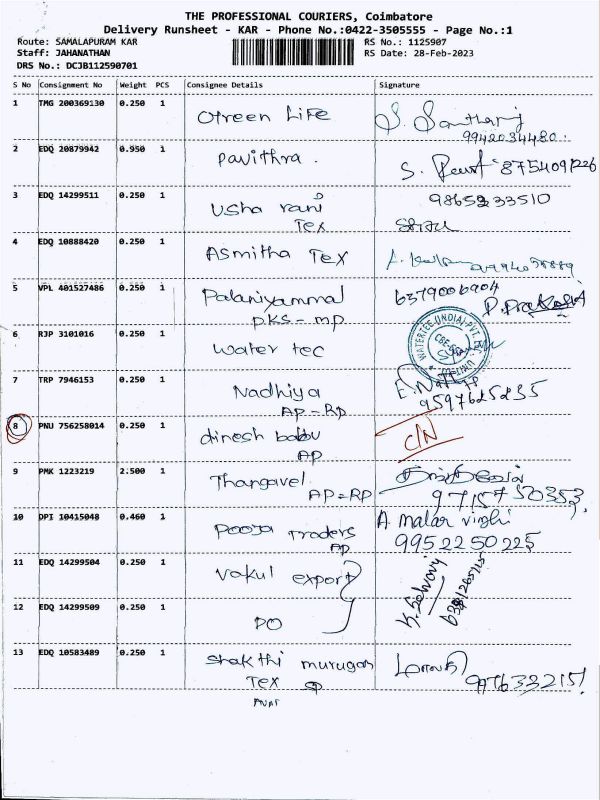 THE PROFESSIONAL COURIERS, Coimbatore
Delivery Runsheet - KAR - Phone No.:0422-3505555 - Page No.:1
Route: SAMALAPURAM KAR RS No.: 1125907
Staff: JAHANATHAN RS Date: 28-Feb-2023
DRS No.: DCJB112590701
S No Consignment No Weight PCS Consignee Details Signature
1 TMG 200369130 0.250 1 Green Life S.
9942034480
2 EDQ 20879942 0.950 1 Pavithra. S. 8754091226
3 EDQ 14299511 0.250 1 Usha rani 9865233510
Tex
4 EDQ 10888420 0.250 1 Asmitha Tex
5 VPL 401527486 0.250 1 Palaniyammal 6379006904
PKS-mp P. Prakash
6 RJP 3101016 0.250 1 water tec WATERTEC (INDIA) PVT
7 TRP 7946153 0.250 1 Nadhiya E.
AP-RP 9597625235
8 PNU 756258014 0.250 1 dinesh babu C/N
AP
9 PMK 1223219 2.500 1 Thangavel தங்கவேல்
AP=RP 9715750353
10 DPI 10415048 0.460 1 Pooja Traders A malar vizhi
AP 9952250225
11 EDQ 14299504 0.250 1 Vakul export K. Selvaraj
12 EDQ 14299509 0.250 1 DO
13 EDQ 10583489 0.250 1 Shakthi murugan
Tex 9976332151